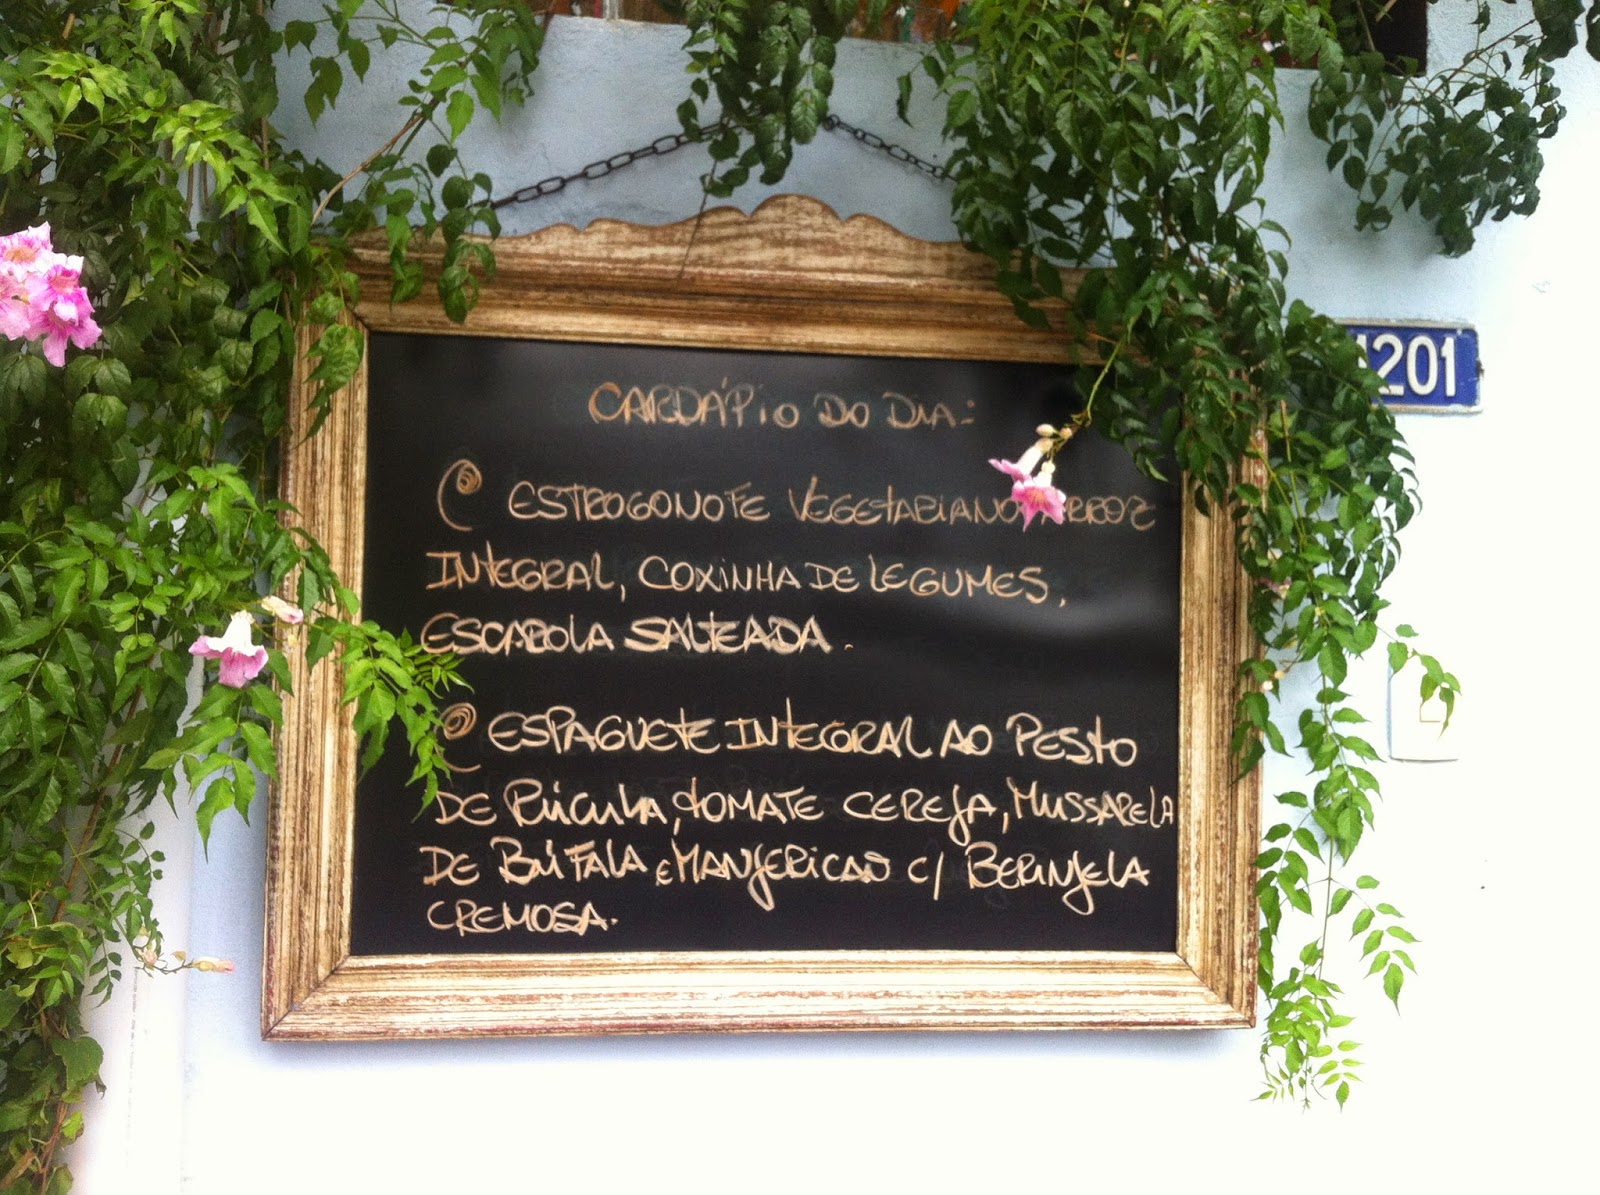 CARDÁPIO DO DIA:
ESTROGONOFE VEGETARIANO, ARROZ
INTEGRAL, COXINHA DE LEGUMES,
ESCAROLA SALTEADA.
ESPAGUETE INTEGRAL AO PESTO
DE RÚCULA, TOMATE CEREJA, MUSSARELA
DE BÚFALA E MANJERICAO C/ BERINJELA
CREMOSA.
1201